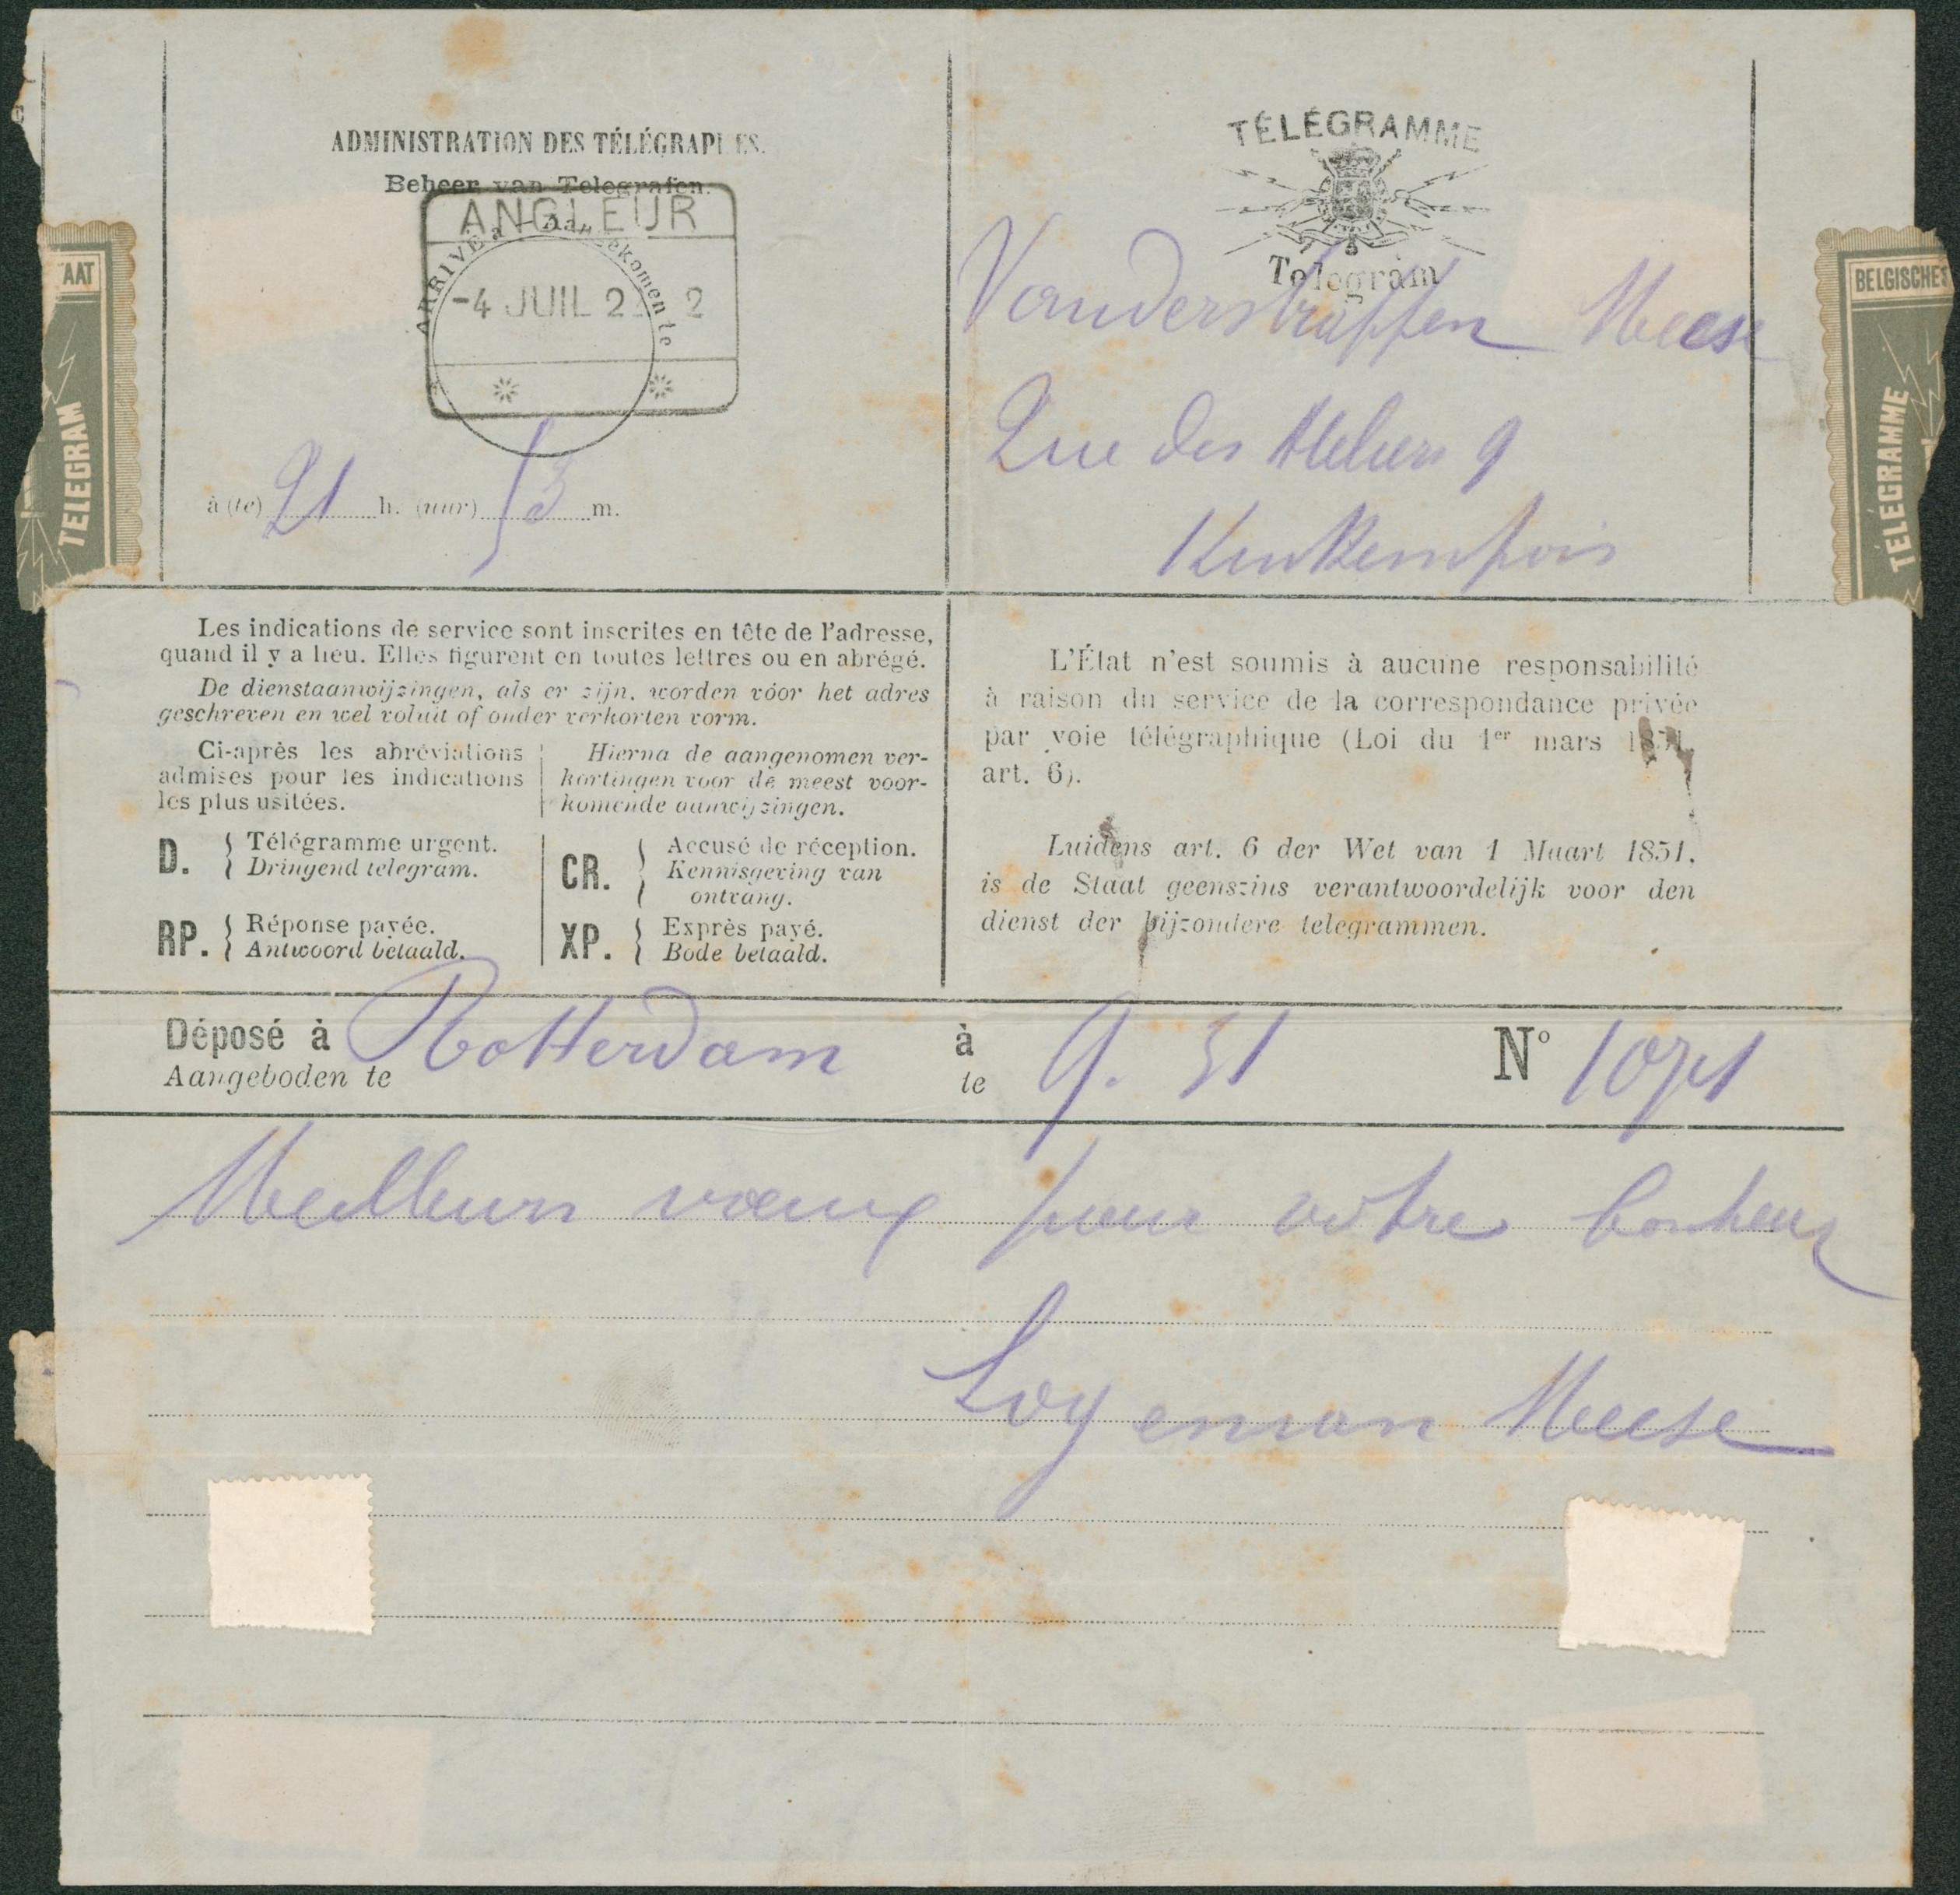 ADMINISTRATION DES TÉLÉGRAPHES.
Beheer van Telegrafen.
ANGLEUR
ARRIVÉ à - Aangekomen te
-4 JUIL 2 2
à (te) 21 h. (uur) 53 m.
TÉLÉGRAMME
Telegram
Vanderstraffen Meese
Rue des Ateliers 9
Kinkempois
AAT
TELEGRAM
BELGISCHE
TELEGRAMME
Les indications de service sont inscrites en tête de l'adresse,
quand il y a lieu. Elles figurent en toutes lettres ou en abrégé.
De dienstaanwijzingen, als er zijn, worden vóor het adres
geschreven en wel voluit of onder verkorten vorm.
Ci-après les abréviations
admises pour les indications
les plus usitées.
Hierna de aangenomen ver-
kortingen voor de meest voor-
komende aanwijzingen.
D. } Télégramme urgent.
Dringend telegram.
RP. } Réponse payée.
Antwoord betaald.
CR. } Accusé de réception.
Kennisgeving van
ontvang.
XP. } Exprès payé.
Bode betaald.
L'État n'est soumis à aucune responsabilité
à raison du service de la correspondance privée
par voie télégraphique (Loi du 1er mars 1851,
art. 6).
Luidens art. 6 der Wet van 1 Maart 1851,
is de Staat geenszins verantwoordelijk voor den
dienst der bijzondere telegrammen.
Déposé à Rotterdam à 9. 31 N° 1071
Aangeboden te te
Meilleurs vœux pour votre bonheur
Loyenson Meese